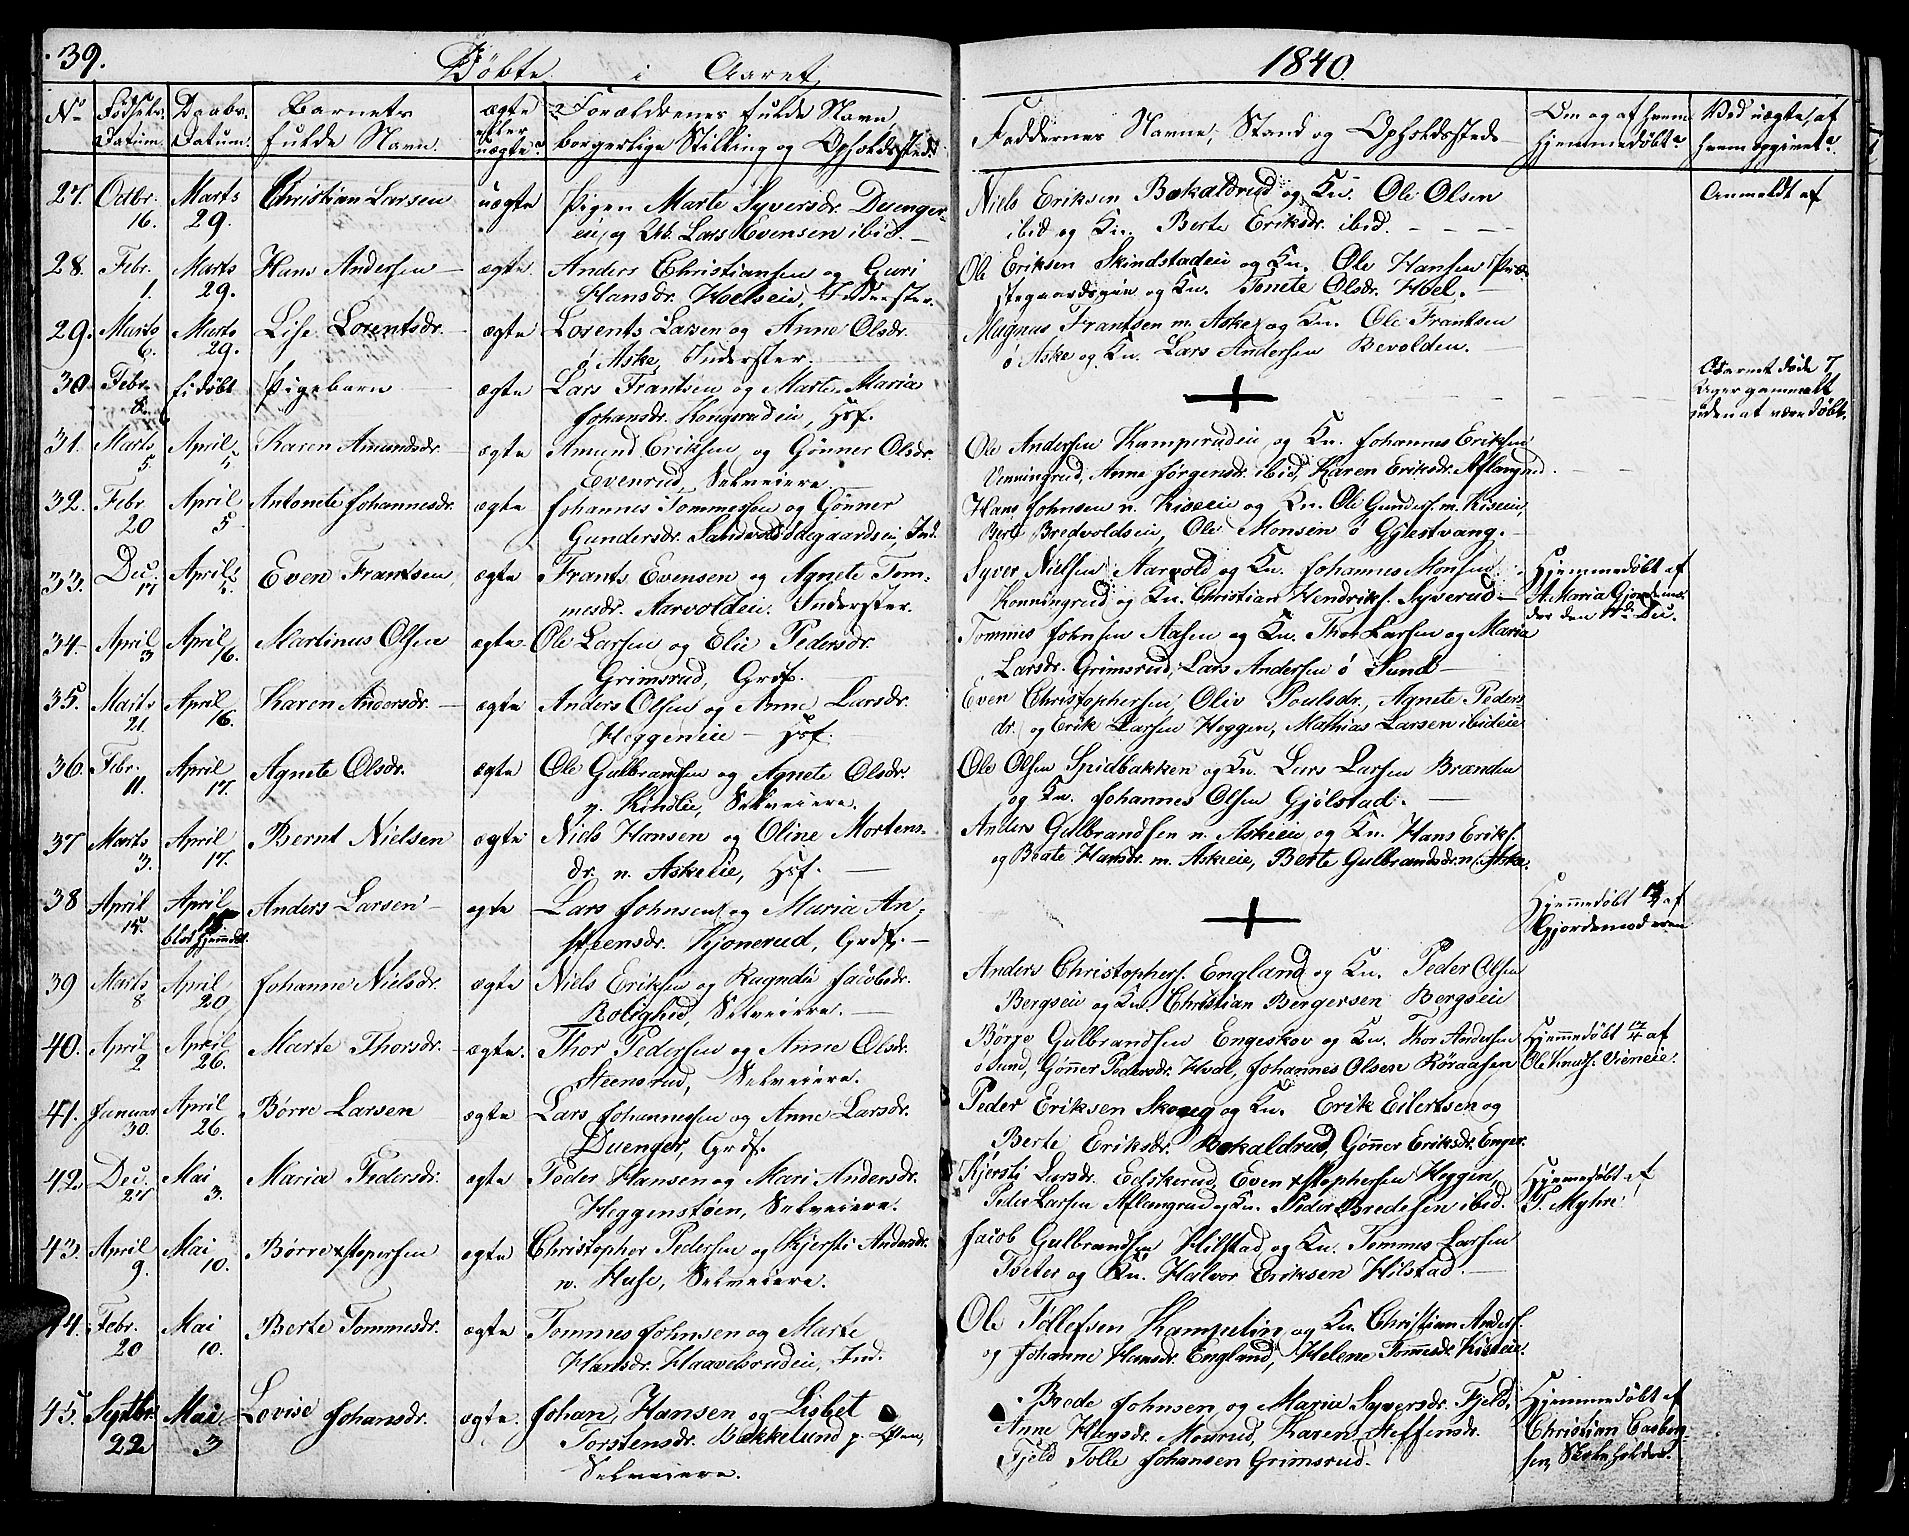 39.
Döbte i Aaret
1840.
No Födsels Datum. Daabs Datum. Barnets fulde Navn. ægte eller uægte? Forældrenes fulde Navn, borgerlige Stilling og Opholdssted.
Faddernes Navne, Stand og Opholdssted
Om og af hvem hjemmedöbt?
Ved uægte, af hvem opgivet?
27. Octbr. Marts Christian Larsen uægte Pigen Marte Syversdr. Duenger-
16. 29. eie, og Lars Evensen ibid.
Niels Eriksen Bakaldrud og Kn. Ole Olsen
ibid og Kn. Berte Eriksdr. ibid.
Anmeldt af
28. Febr. Marts Hans Andersen ægte Anders Christiansen og Guri
1. 29. Hansdr. Hoelseie, Inderster.
Ole Eriksen Skindstadeie og Kn. Ole Hansen Præ-
stegaardseie og Kn. Tonete Olsdr. Hoel.
29. Marts Marts Lise Lorentsdr. ægte Lorents Larsen og Anne Olsdr.
6. 29. ö Aske, Inderster.
Magnus Frantsen m. Aske og Kn. Ole Frantsen
ö Aske og Kn. Lars Andersen Bevolden.
30. Febr. ei döbt Pigebarn ægte Lars Frantsen og Marte Maria
8. Johansdr. Kongsrudeie, Hsf.
Barnet döde 7
Uger gammelt
uden at være döbt.
31. Marts April Karen Amundsdr. ægte Amund Eriksen og Gönner Olsdr.
5. 5 Evenrud, Selveiere.
Ole Andersen Kamperudeie og Kn. Johannes Eriksen
Venningrud, Anne Jörgensdr. ibid, Karen Eriksdr. Aflangrud.
32. Febr. April Antonete Johannesdr. ægte Johannes Tommessen og Gönner
20 5. Gundersdr. Sandvold Ödegaardseie, Ind.
Hans Johnsen n. Kiseeie og Kn. Ole Gunders. m. Kiseeie,
Bredvoldseie, Ole Monsen ö Gjestvang.
33. Dec. April Even Frantsen ægte Frants Evensen og Agnete Tom-
17. 5. mesdr. Aarvoldeie. Inderster.
Syver Nielsen Aarvold og Kn. Johannes Monsen
Konningrud og Kn. Christian Hendriks. Syverud
Hjemmedöbt af
Maria Gjordemo-
der den Dec.
34. April April Martinus Olsen ægte Ole Larsen og Elie Pedersdr.
3 16. Grimsrud, Grdf.
Tommes Johnsen Aasen og Kn. Thor Larsen og Maria
Larsdr. Grimsrud, Lars Andersen ö Sund
35. Marts April Karen Andersdr. ægte Anders Olsen og Anne Larsdr.
21. 16. Heggeneie Hsf.
Even Christophersen, Oliv Poulsdr., Agnete Peders-
dr. og Erik Larsen Heggen, Mathias Larsen ibideie
36. Febr. April Agnete Olsdr. ægte Ole Gulbrandsen og Agnete Olsdr.
11. 17. n. Kindlie, Selveiere.
Ole Olsen Spidbakken og Kn. Lars Larsen Brænden
og Kn. Johannes Olsen Gjölstad.
37 Marts April Bernt Nielsen ægte Niels Hansen og Oline Mortens-
3. 17. dr. n. Askeeie, Hsf.
Anders Gulbrandsen n. Askeeie, og Kn. Hans Eriks.
og Beate Hansdr. m. Askeeie, Berte Gulbrandsdr. n. Aske.
38 April April Anders Larsen ægte Lars Johnsen og Maria An-
15. 15 stensdr. Kjonerud, Grdf.
blot hjemmedöbt.
Hjemmedöbt 15/4 af
Gjordemoderen
39 Marts April Johanne Nielsdr. ægte Niels Eriksen og Ragndi Jacobsdr.
8 20 Rolighed, Selveiere.
Anders Christophers. England og Kn. Peder Olsen
Bergseie og Kn. Christian Bergersen Bergseie
40. April April Marte Thorsdr. ægte. Thor Pedersen og Anne Olsdr.
2 26. Steensrud, Selveiere.
Börge Gulbrandsen Engeskov og Kn. Thor Andersen
ö Sund, Gönner Pedersdr. Hval, Johannes Olsen Röraasen
Hjemmedöbt af
Ole Knuds. Vieneie.
41. Januar April Börre Larsen ægte Lars Johannessen og Anne Larsdr.
30. 26. Duenger, Grdf.
Peder Eriksen Skoug og Kn. Erik Eilertsen og
Berte Eriksdr. Bakaldrud, Gönner Eriksdr. Enger.
42. Dec. Mai Maria Pedersdr. ægte Peder Hansen og Mari Andersdr.
27 3. Heggenstöen, Selveiere.
Kjersti Larsdr. Eidskerud, Even Xstophersen Heggen,
Peder Larsen Aflangrud og Kn. Peder Bredesen ibid.
Hjemmedöbt af
P. Myhre
43. April Mai Börre Xstopersen ægte Christopher Pedersen og Kjersti Andersdr.
9. 10. n. Huse, Selveiere.
Jacob Gulbrandsen Hilstad og Kn. Tommes Larsen
Tveter og Kn. Halvor Eriksen Hilstad.
44. Febr. Mai Berte Tommesdr. ægte Tommes Johnsen og Marte
20 10. Hansdr. Haavelsrudeie, Ind.
Ole Tollefsen Kampelin og Kn. Christian Anders.
og Johanne Hansdr. England, Helene Tommesdr. Kiseeie.
45. Septbr. Mai Lovise Johansdr. ægte. Johan Hansen og Lisbet
22 3 Torstensdr. Bakkelund p. Öen,
Selveiere.
Brede Johnsen og Maria Syversdr. Fjeld,
Anne Hansdr. Mourud, Karen Steffensdr.
Fjeld Tolle Johansen Grimsrud.
Hjemmedöbt af
Christian Casberg-
sen, Skoleholder.